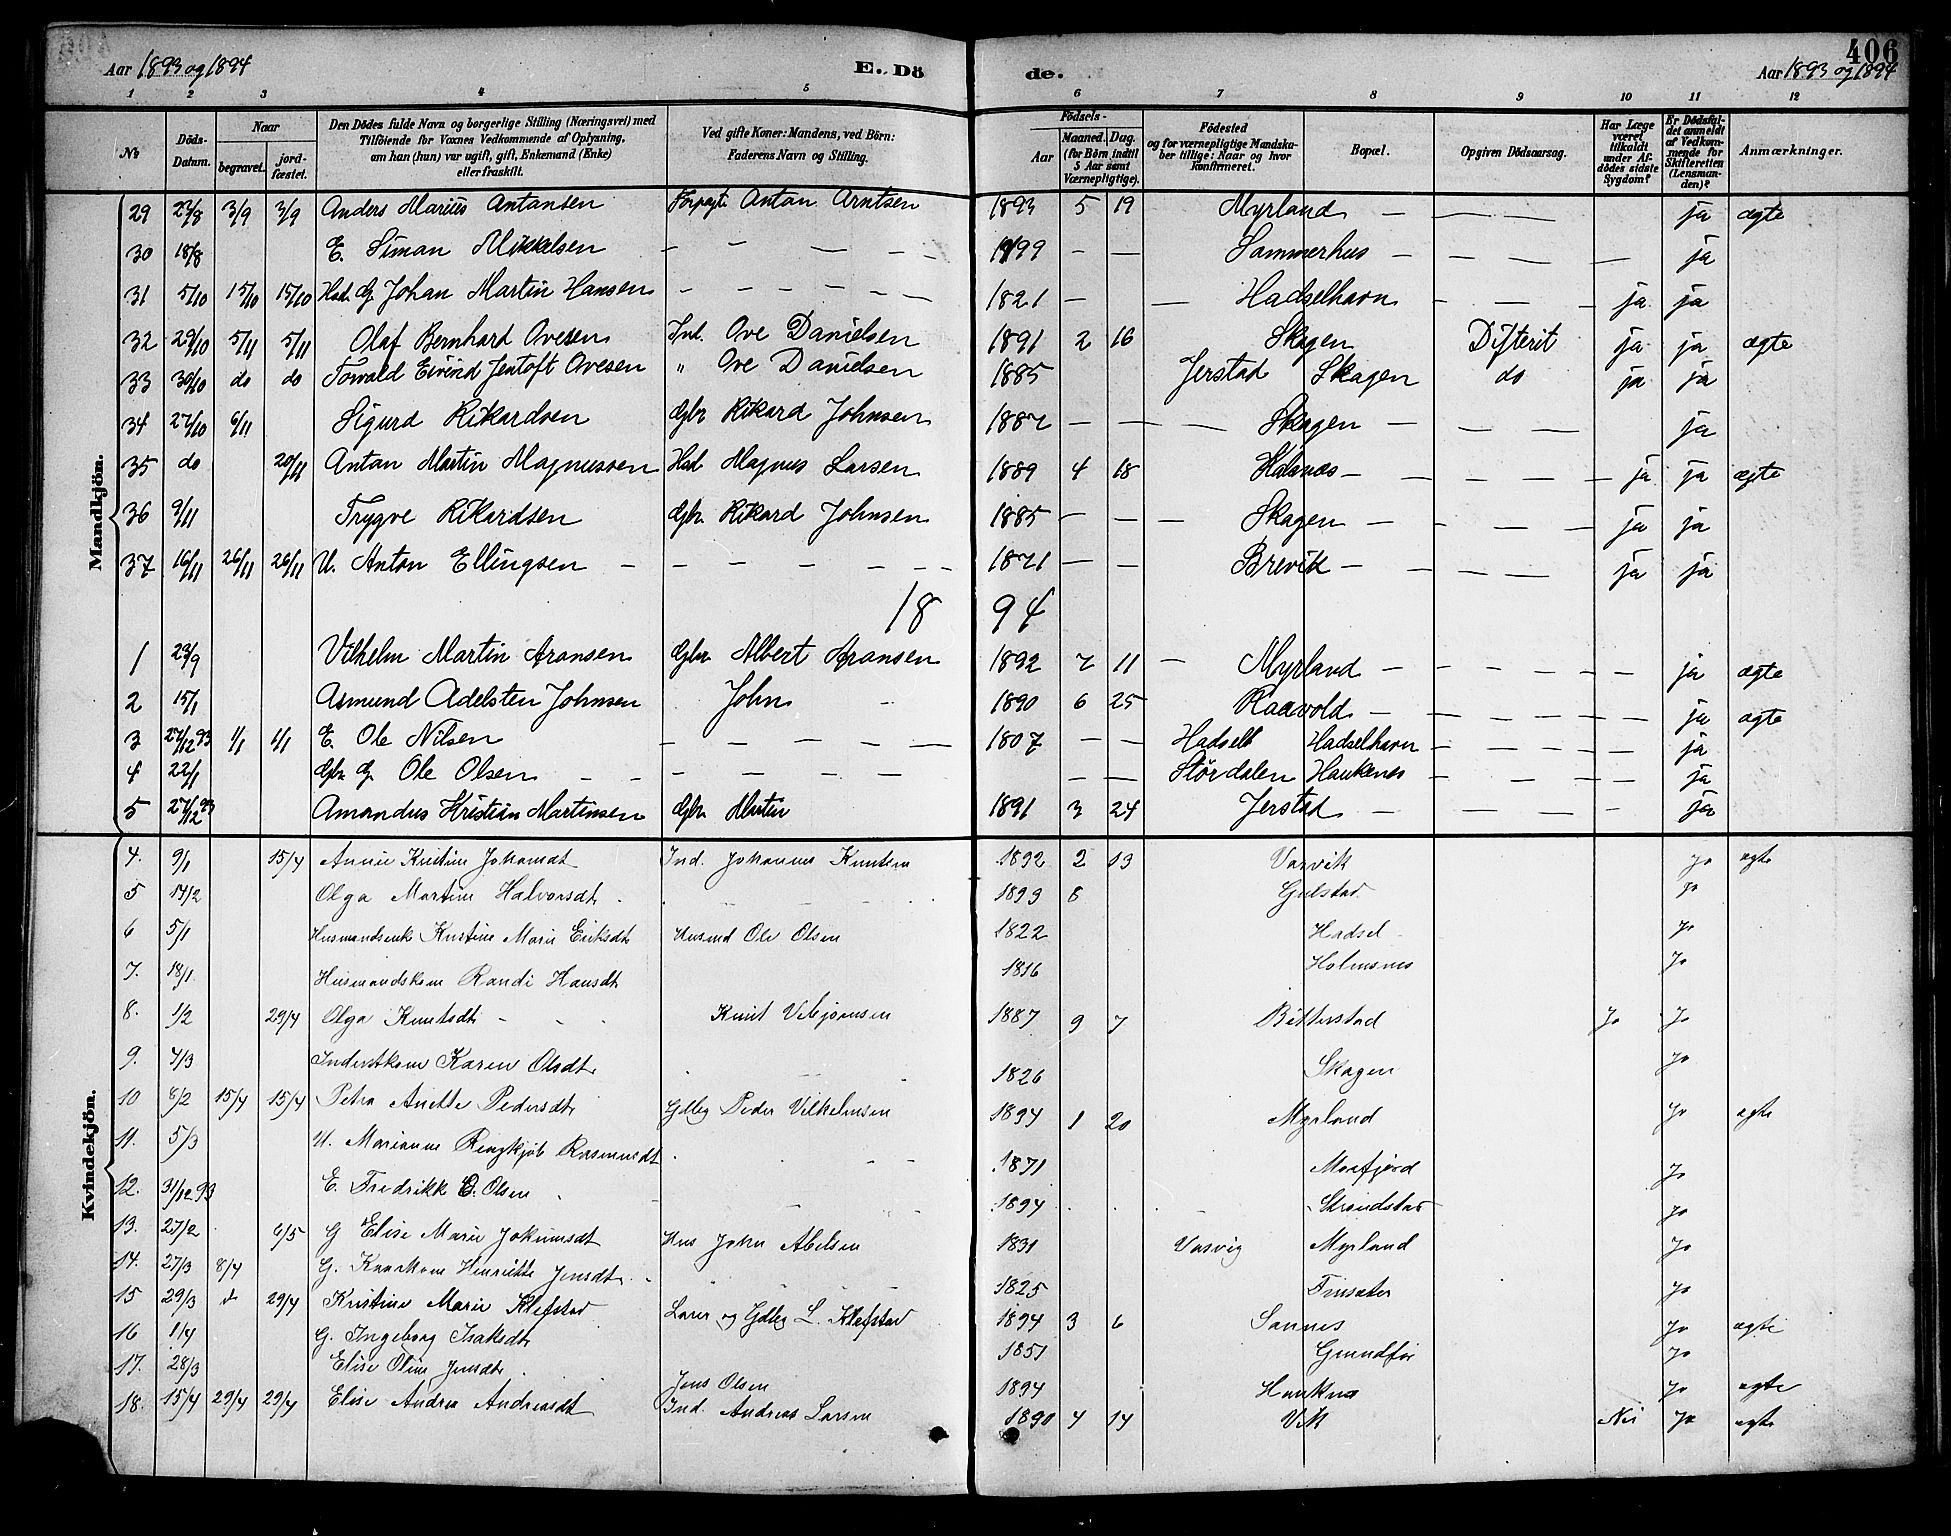 406
Aar 1893 og 1894 E. Dö de. Aar 1893 og 1894
1 2 3 4 5 6 7 8 9 10 11 12
No Döds-Datum. Naar begravet. jord-fæstet. Den Dödes fulde Navn og borgerlige Stilling (Næringsvei) med Tilföiende for Voxnes Vedkommende af Oplysning, om han (hun) var ugift, gift, Enkemand (Enke) eller fraskilt. Ved gifte Koner: Mandens, ved Börn: Faderens Navn og Stilling. Födsels- Aar Maaned. Dag. (for Börn indtil 5 Aar samt Værnepligtige). Födested og for værnepligtige Mandskaber tillige: Naar og hvor konfirmeret. Bopæl. Opgiven Dödsaarsag. Har Læge været tilkaldt under Afdödes sidste Sygdom? Er Dödsfaldet anmeldt af Vedkommende for Skifteretten (Lensmanden)? Anmærkninger.
Mandkjön.
29 23/8 3/9 3/9 Anders Marius Antonsen Forpagt. Anton Arntsen 1893 5 19 Myrland — — — — ja ægte
30 18/8 E. Siman Mikkelsen — — — — 99 — — Sommerhus — — — — — ja
31 5/10 15/10 15/10 G. Johan Martin Hansen — — — — 1821 — — Hadselhavn — — — ja ja
32 29/10 5/11 5/11 Olaf Bernhard Ovesen Ind. Ove Danielsen 1891 2 16 Skagen Difterit ja ja ægte
33 30/10 do do Torvald Eivind Jentoft Ovesen " Ove Danielsen 1885 Jerstad Skagen do ja ja
34 27/10 6/11 Sigurd Rikardsen Gbr Rikard Johnsen 1887 — — — — Skagen — — — ja
35 do 20/11 Anton Martin Magnussen Magnus Larsen 1889 4 18 Holsnæs — — — — — ja ja ægte
36 9/11 Trygve Rikardsen Gbr. Rikard Johnsen 1885 — — — Skagen — — — — ja ja
37 16/11 26/11 26/11 U. Anton Ellingsen — — — — — — 1871 — — Brevik — — — — ja ja
18 94
1 23/9 Vilhelm Martin Aronsen Gbr Albert Aronsen 1892 7 11 — Myrland — — — — — — ja ægte
2 15/1 Asmund Adelsten Johnsen John 1890 6 25 Raavold — — — — — — ja ægte
3 27/12 93 1/1 1/1 E. Ole Nilsen — — — — — 1807 — — Hadsel Hadselhavn — — — — — ja
4 22/1 Gbr G. Ole Olsen — — — — — — — — Stördalen Haukenes — — — — — ja
5 27/12 93 Amandus Kristian Martinsen Gbr Martin 1891 3 24 Jerstad — — — — — ja
Kvindekjön.
4. 9/1 15/4 Anne Kristine Johansdt Ind. Johannes Knutsen 1892 2 13 Vasvik ja ægte
5 14/2 Olga Martine Halvorsdt 1893 8 Gulstad ja
6 5/1 Husmandsenk Kristine Marie Eriksdt Husmd Ole Olsen 1822 Hadsel ja
7. 18/1 Husmandskone Randi Hansdt 1816 Holmsnes ja
8. 1/2 29/4 Olga Knutsdt — — — Knut Vebjørnsen 1887 9 7 Bitterstad Ja ja
9. 4/3 Inderstkone Karen Olsdt. 1826 Skagen ja
10 8/2 15/4 15/4 Petra Anette Pedersdt Gdbg Peder Vilhelmsen 1894 1 20 Myrland ja ægte
11. 5/3 U. Marianne Ringkjöb Rasmusdt 1871 Morfjord ja
12. 31/12 93 E. Fredrikke C. Olsen 1894 Strendstad ja
13. 27/2 6/5 G Elise Marie Jokumsdt Hus John Abelsen 1831 Vasvig Myrland ja
14. 27/3 8/4 G. Kaarkone Henriette Jensdt. 1825 Finsæter ja
15 29/3 d 29/4 Kristine Marie Klefstad Lærer og Gdbg L. Klefstad 1894 3 6 Sannes ja ægte
16 1/4 G. Ingeborg Isaksdt 1851 Grundfør ja
17. 28/3 Elise Oline Jensdt. Jens Olsen 1894 Hauknes ja ægte
18. 15/4 29/4 29/4 Elise Andrea Andreasdt Ind. Andreas Larsen 1890 4 14 Vik Nei ja ægte